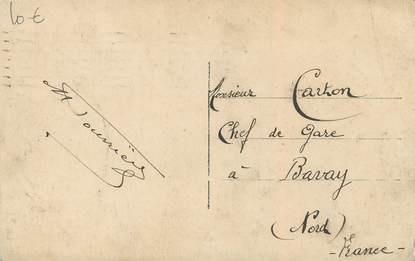 10 €
Monsieur Carton
Chef de Gare
à Bavay
(Nord)
- France -